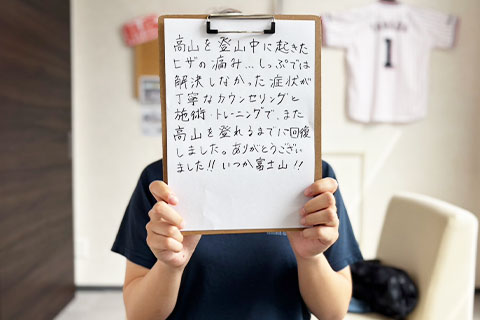 高山を登山中に起きた
ヒザの痛み...しっぷでは
解決しなかった症状が
丁寧なカウンセリングと
施術・トレーニングで、また
高山を登れるまでに回復
しました。ありがとうござい
ました!! いつか富士山!!
1